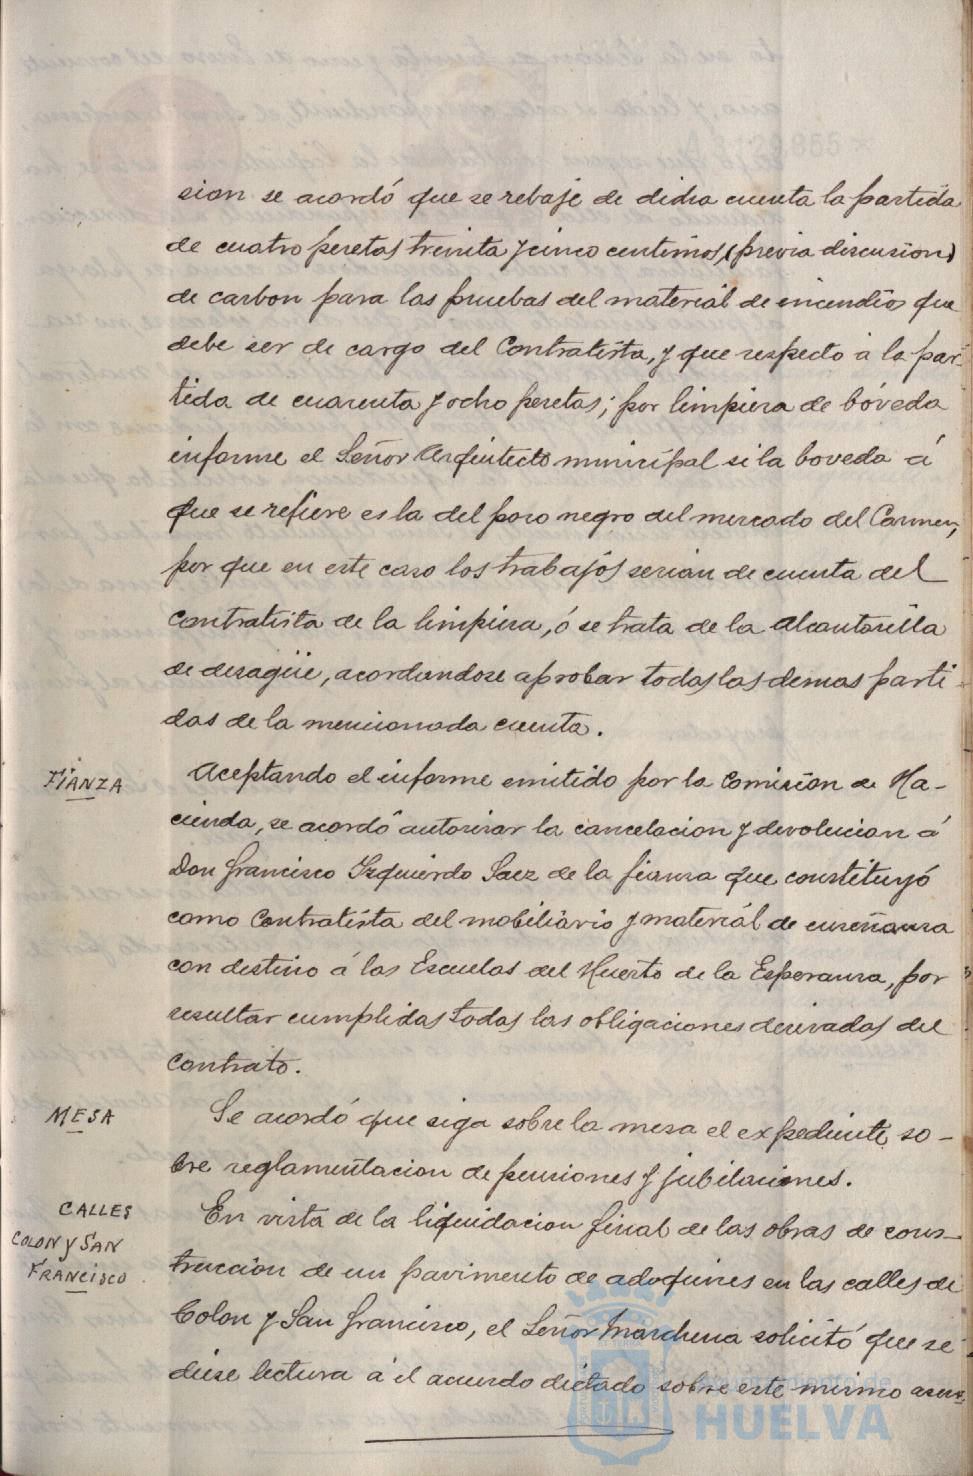 sion se acordó que se rebaje de dicha cuenta la partida
de cuatro pesetas treinta y cinco centimos, (previa discusion)
de carbon para las pruebas del material de incendios que
debe ser de cargo del Contratista, y que respecto á la par-
tida de cuarenta y ocho pesetas; por limpieza de bóveda
informe el Señor Arquitecto municipal si la boveda á
que se refiere es la del pozo negro del mercado del Carmen,
por que en este caso los trabajos serian de cuenta del
Contratista de la limpieza, ó se trata de la alcantarilla
de desagüe, acordandose aprobar todas las demas parti-
das de la mencionada cuenta.
FIANZA
Aceptando el informe emitido por la Comisión de Ha-
cienda, se acordó autorizar la cancelacion y devolucion á
Don Francisco Izquierdo Saez de la fianza que constituyó
como Contratista del mobiliario y material de enseñanza
con destino á las Escuelas del Huerto de la Esperanza, por
resultar cumplidas todas las obligaciones derivadas del
Contrato.
MESA
Se acordó que siga sobre la mesa el expediente so-
bre reglamentacion de pensiones y jubilaciones.
CALLES
COLON y SAN
FRANCISCO
En vista de la liquidacion final de las obras de cons-
truccion de un pavimento de adoquines en las calles de
Colon y San Francisco, el Señor Marchena solicitó que se
diese lectura á el acuerdo dictado sobre este mismo asun-
Ayuntamiento de
HUELVA